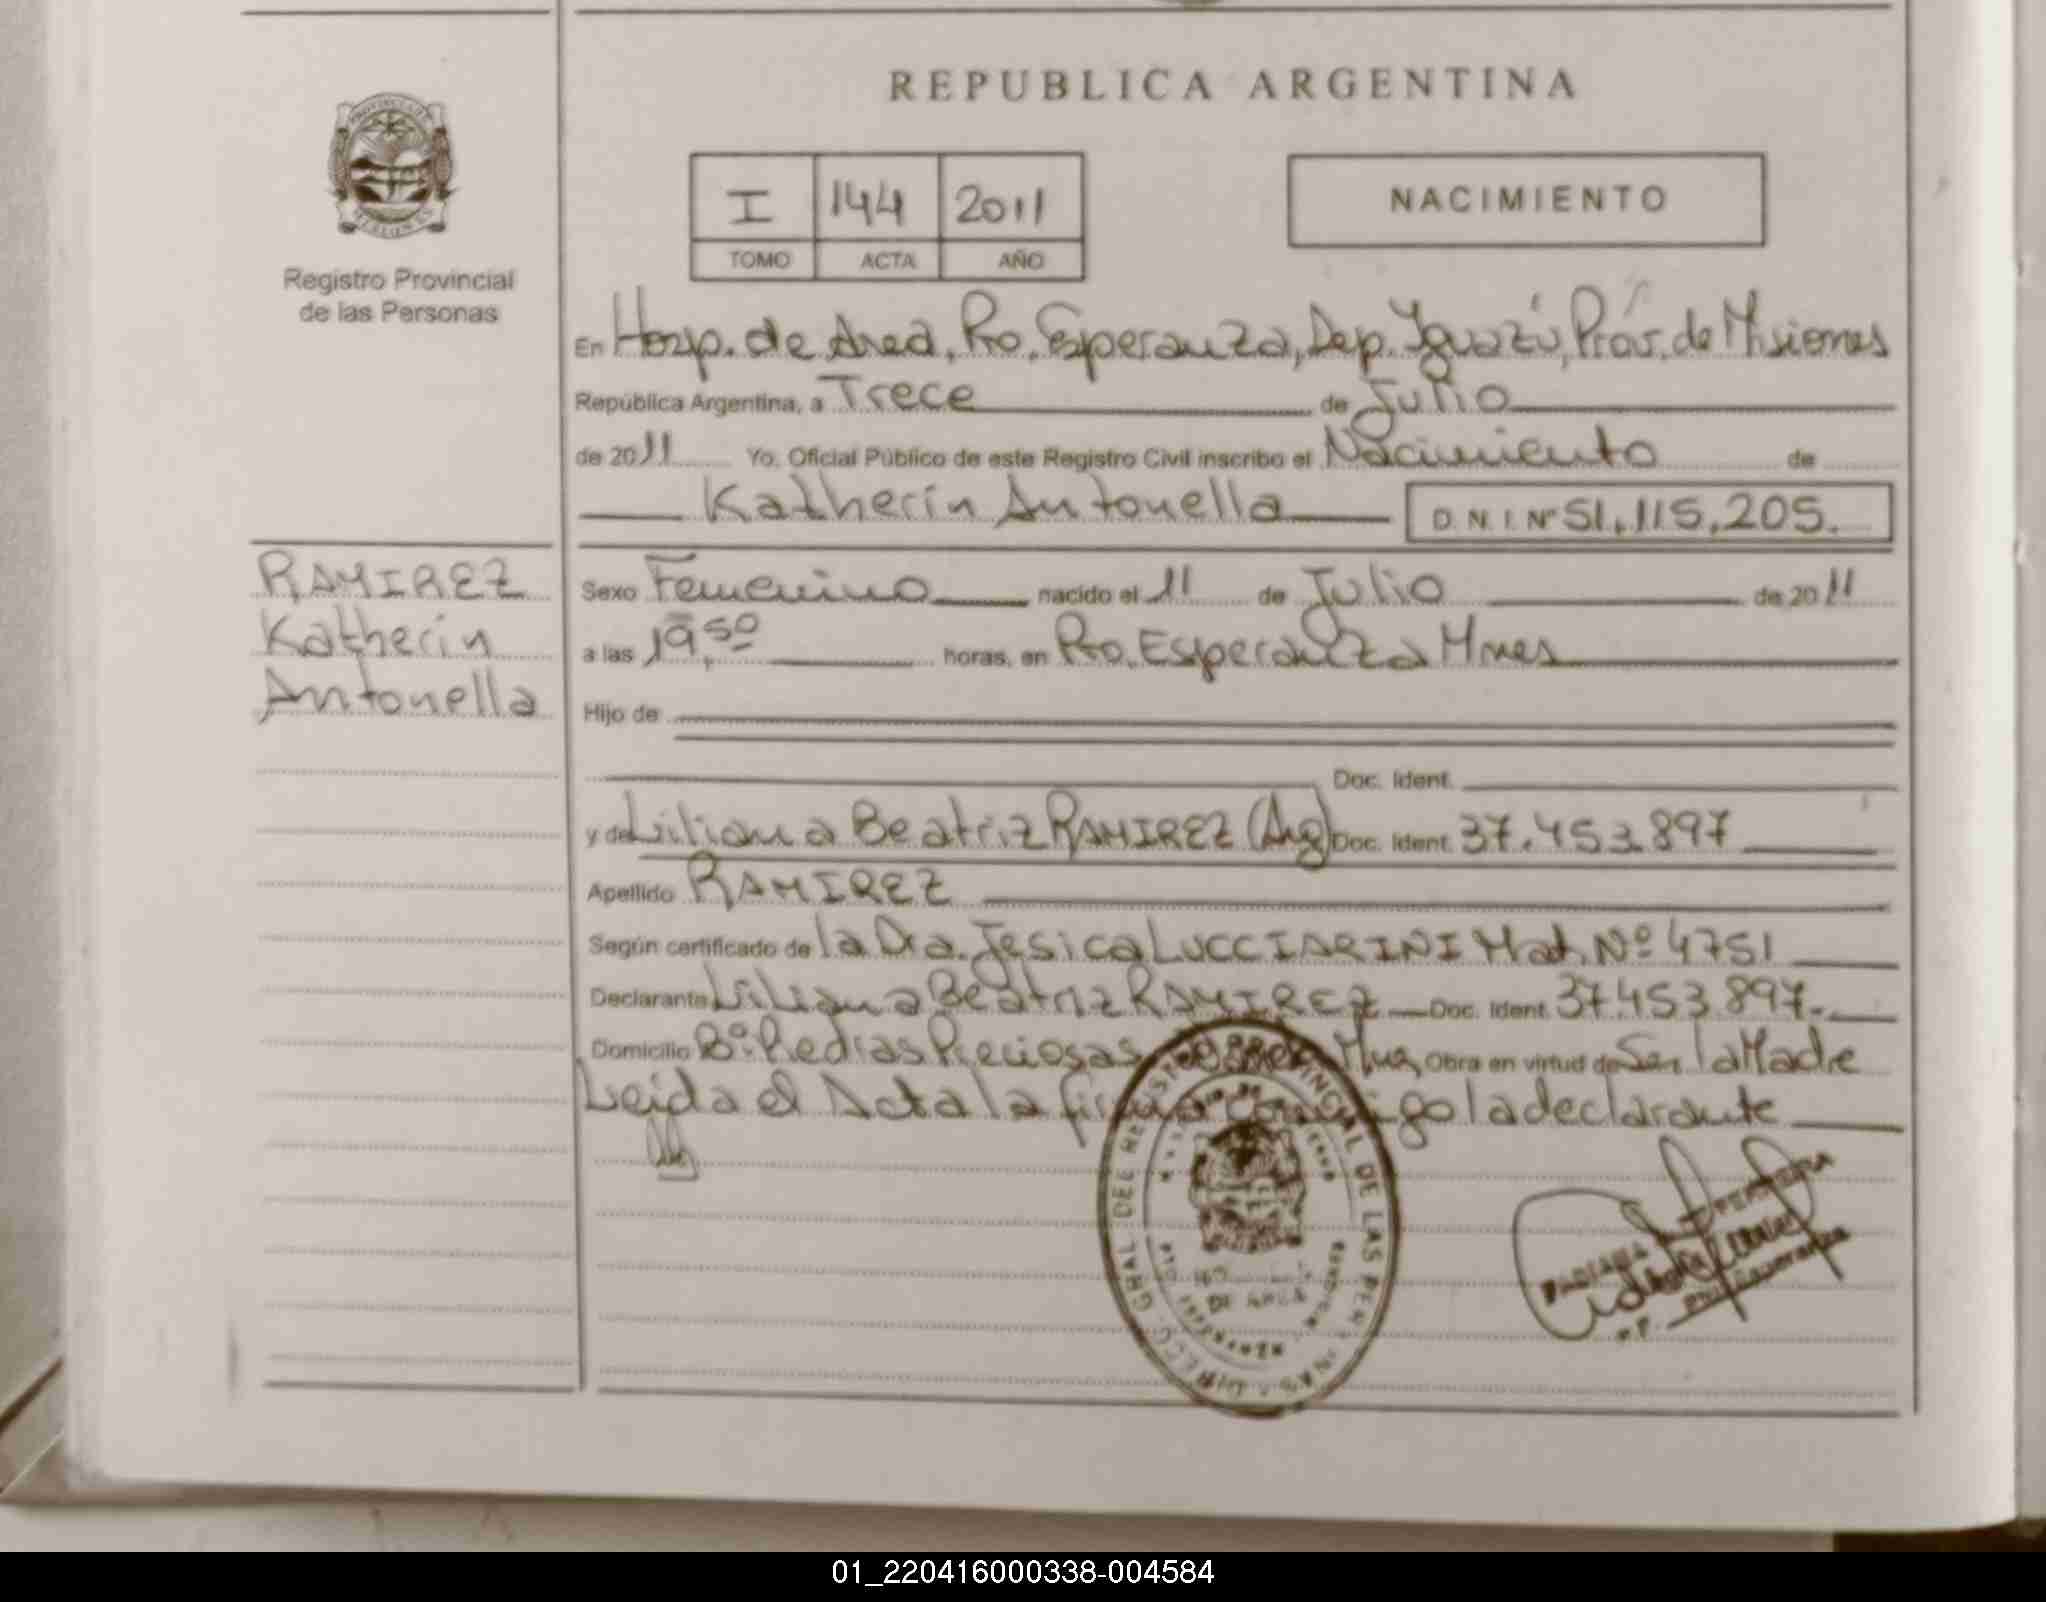 REPUBLICA ARGENTINA
I 144 2011
TOMO ACTA AÑO
NACIMIENTO
Registro Provincial
de las Personas
En Hosp. de Area, Pto. Esperanza, Dep. Iguazú, Prov. de Misiones
República Argentina, a Trece de Julio
de 2011 Yo, Oficial Público de este Registro Civil inscribo el Nacimiento de
Katherin Antonella D.N.I. Nº 51.115.205.
RAMIREZ
Katherin
Antonella
Sexo Femenino nacido el 11 de Julio de 2011
a las 19,50 horas, en Pto. Esperanza Mnes
Hijo de
Doc. Ident.
y de Liliana Beatriz RAMIREZ (Arg) Doc. Ident. 37.453.897
Apellido RAMIREZ
Según certificado de la Dra. Jesica LUCCIARINI Mat. Nº 4751
Declarante Liliana Beatriz RAMIREZ Doc. Ident. 37.453.897.
Domicilio Bº. Piedras Preciosas Obra en virtud de Ser la Madre
Leida el Acta la firma conmigo la declarante
DIRECC. GRAL. DEL REGISTRO PROVINCIAL DE LAS PERSONAS
DE AREA
01_220416000338-004584